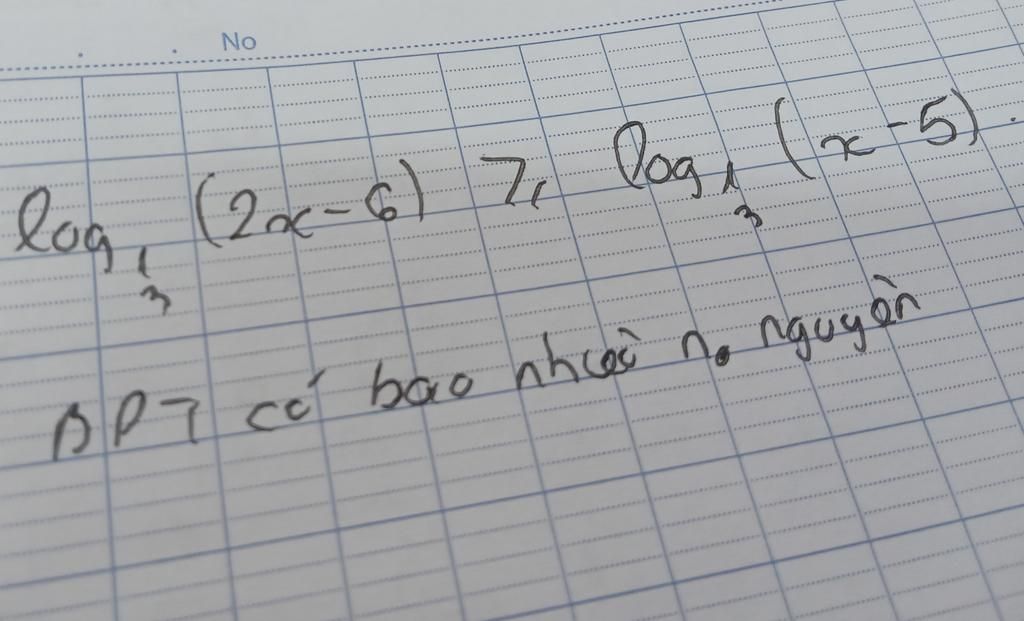 No
log_{1/3} (2x-6) ≥ log_{1/3} (x-5).
BPT có bao nhiêu n₀ nguyên